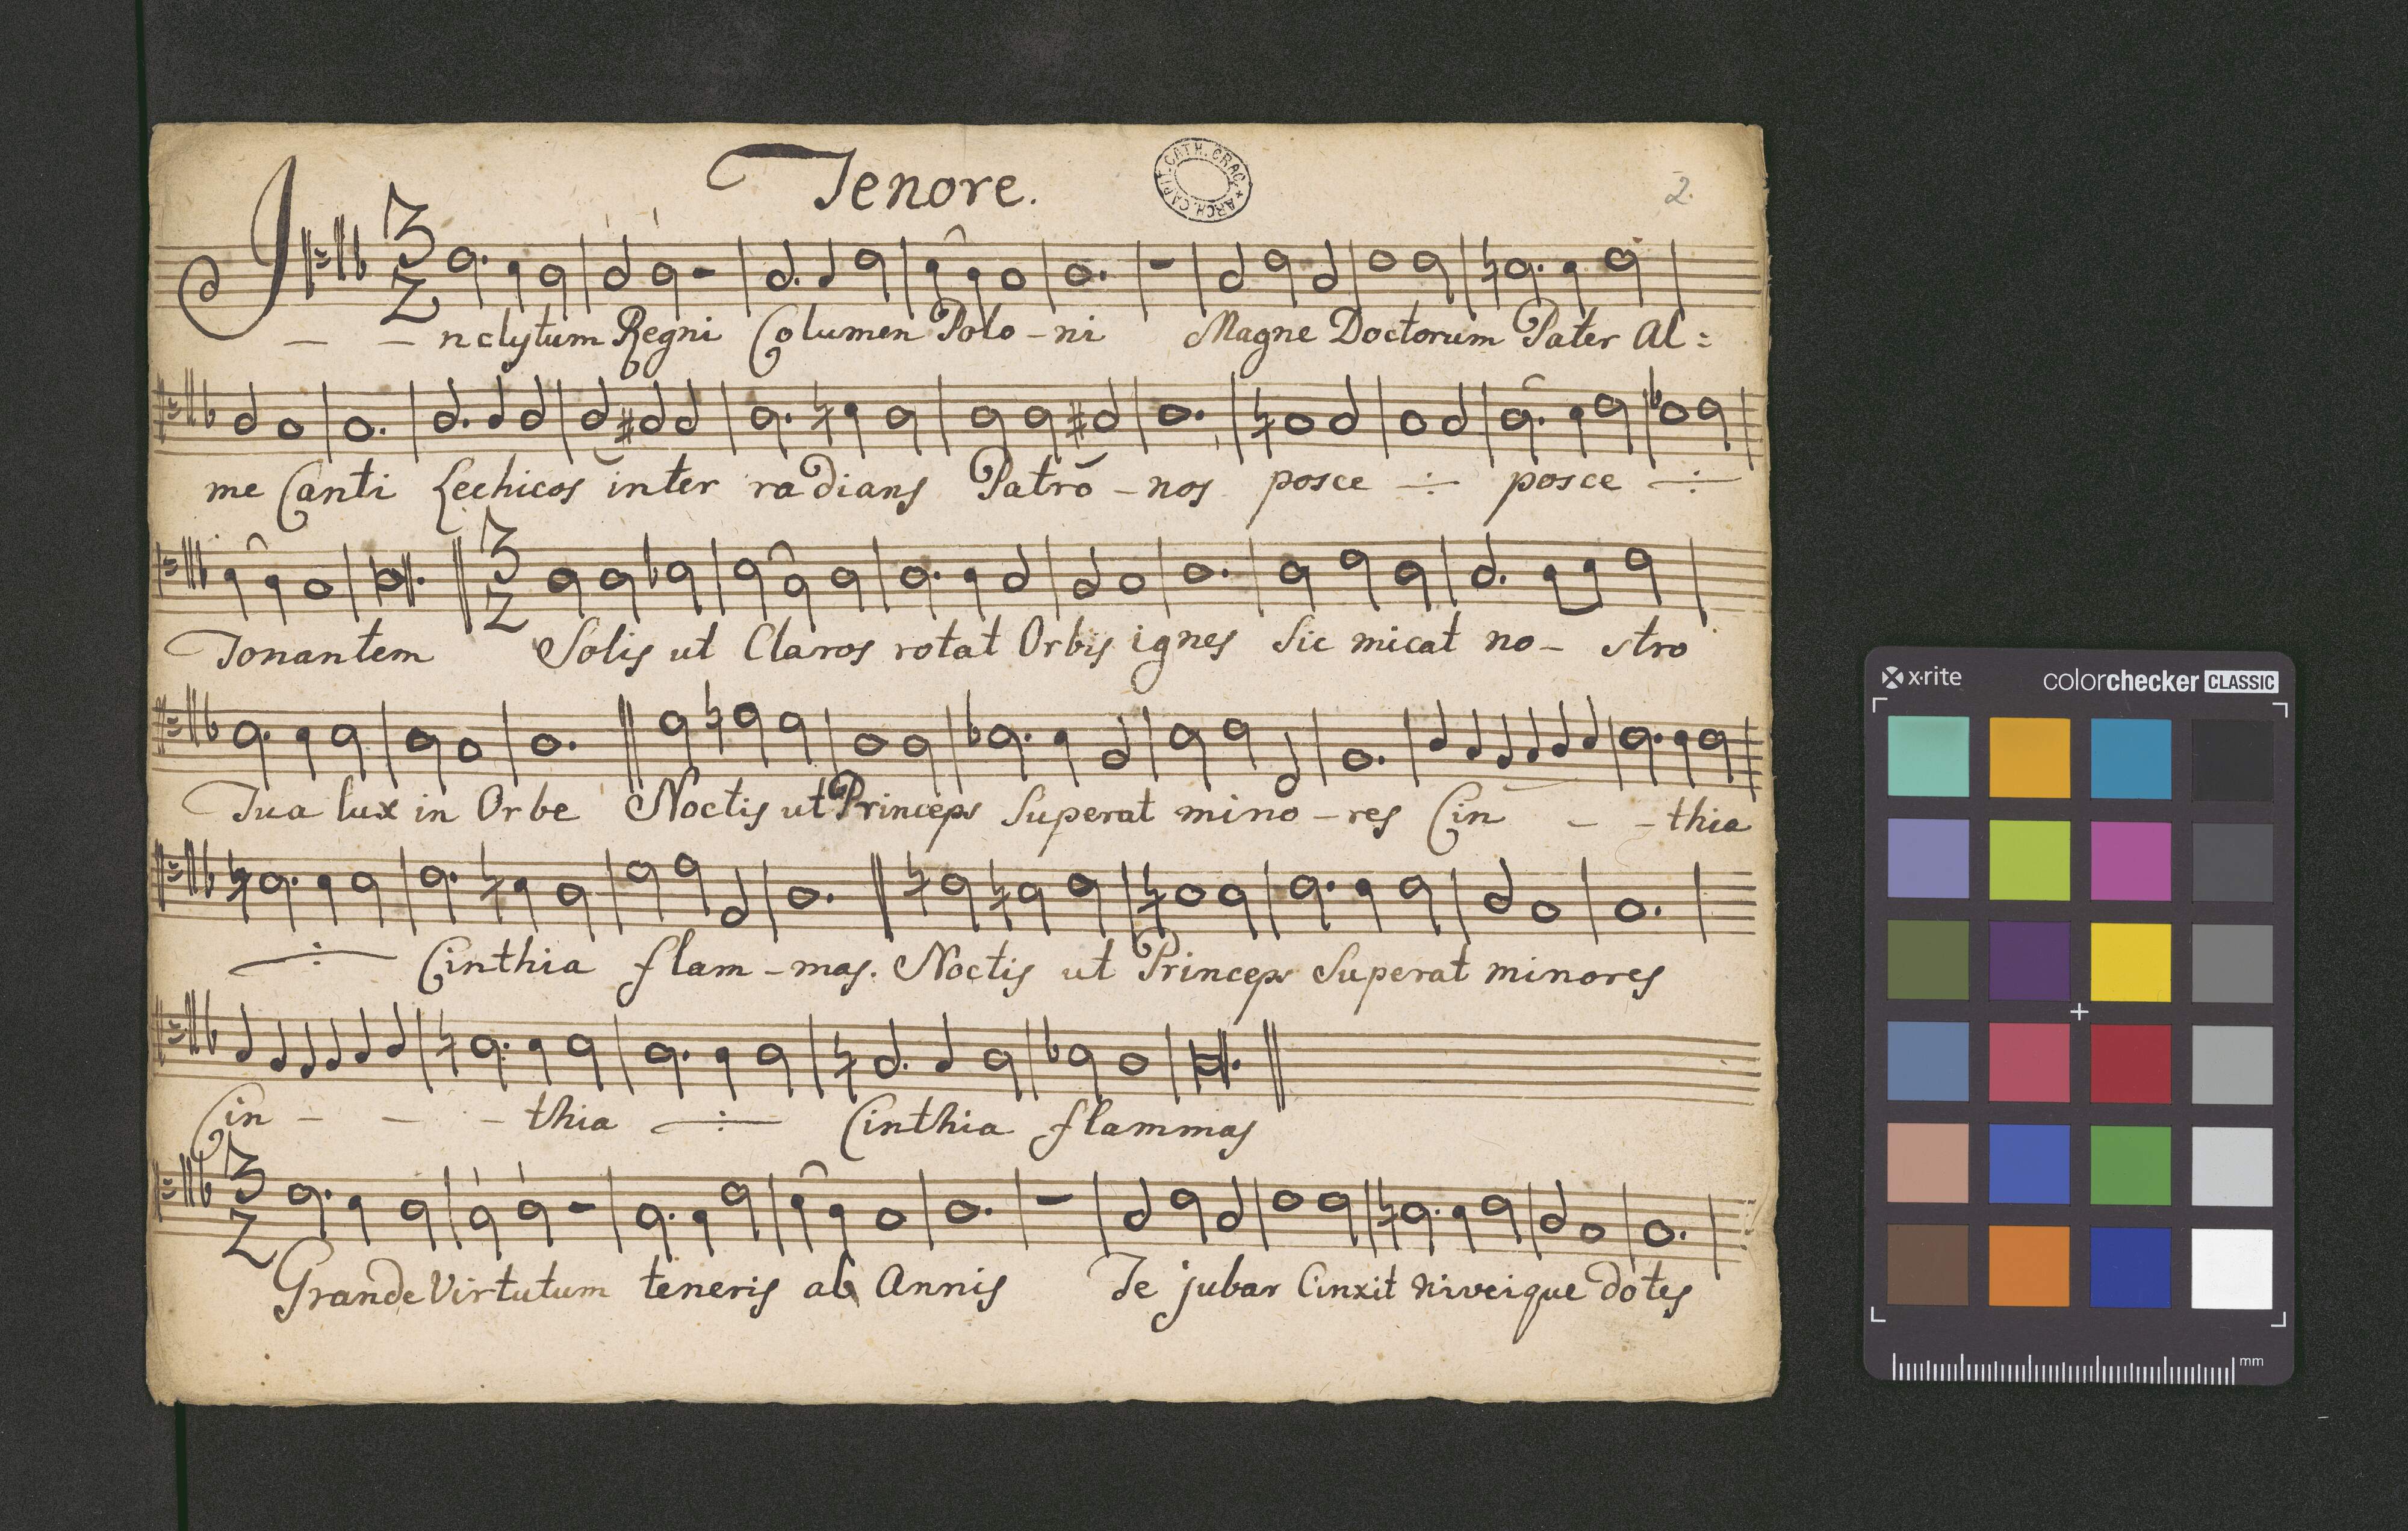 Tenore.
ARCH. CAPIT. CATH. CRAC.
2.
3
2
I - - nclytum Regni Columen Polo - ni Magne Doctorum Pater Al:
me Canti Lechicos inter radians Patrō - nos posce ÷ posce ÷
3
2
Tonantem Solis ut Claros rotat Orbis ignes Sic micat no - stro
Tua lux in Orbe Noctis ut Princeps Superat mino - res Cin - - thia
÷ Cinthia flam - mas. Noctis ut Princeps Superat minores
Cin - - - thia ÷ Cinthia flammas
3
2
Grande Virtutum teneris ab Annis Te jubar Cinxit niveique dotes
x·rite
colorchecker CLASSIC
mm